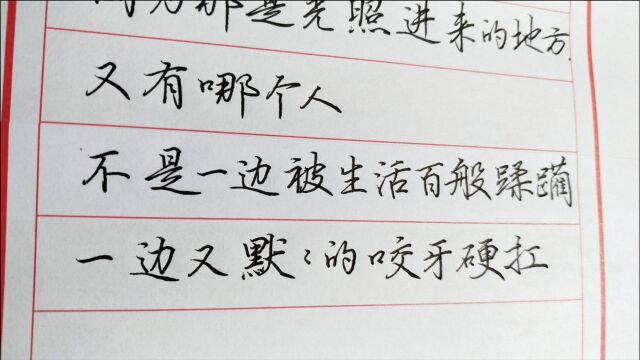 那是光照进来的地方.
又有哪个人
不是一边被生活百般蹂躏
一边又默:的咬牙硬扛